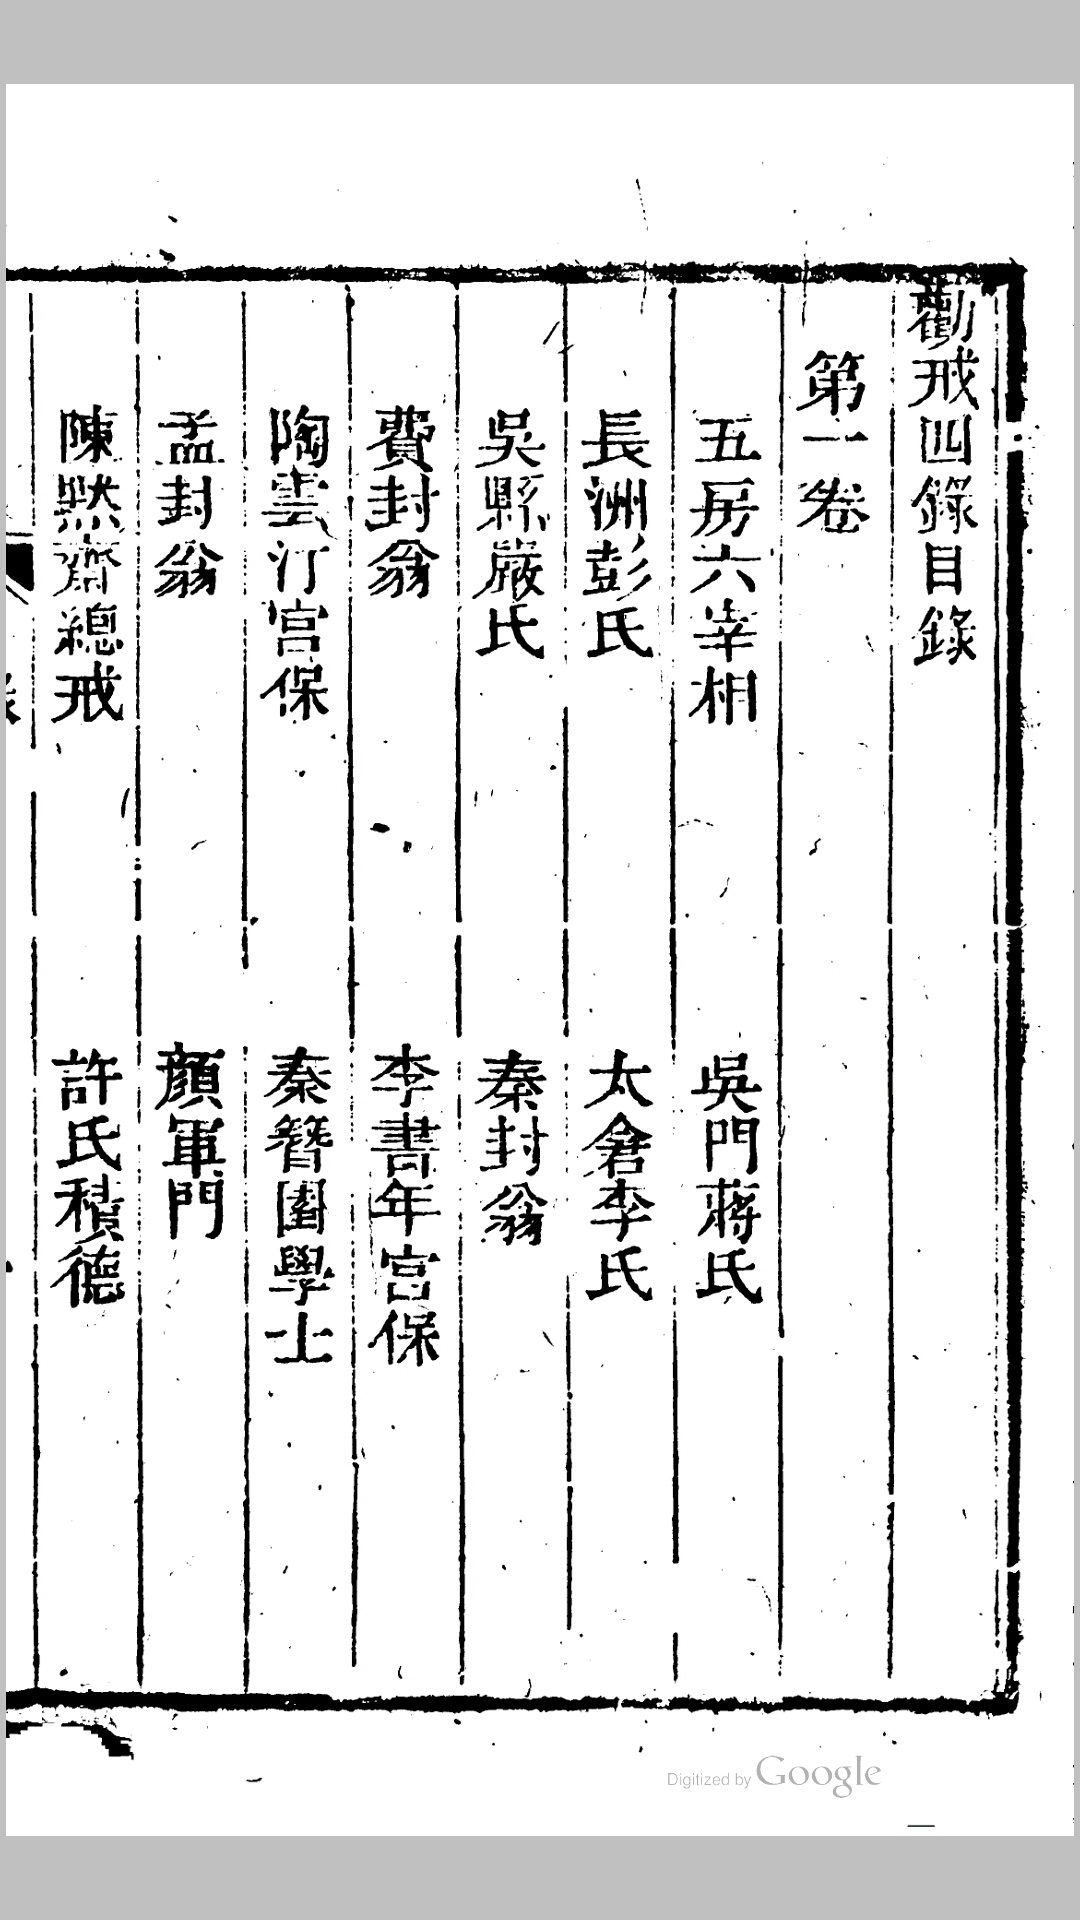 勸戒四錄目錄
第一卷
五房六宰相　吳門蔣氏
長洲彭氏　太倉李氏
吳縣嚴氏　秦封翁
費封翁　李書年宮保
陶雲汀宮保　秦簪園學士
孟封翁　顏軍門
陳默齋總戎　許氏積德
Digitized by Google